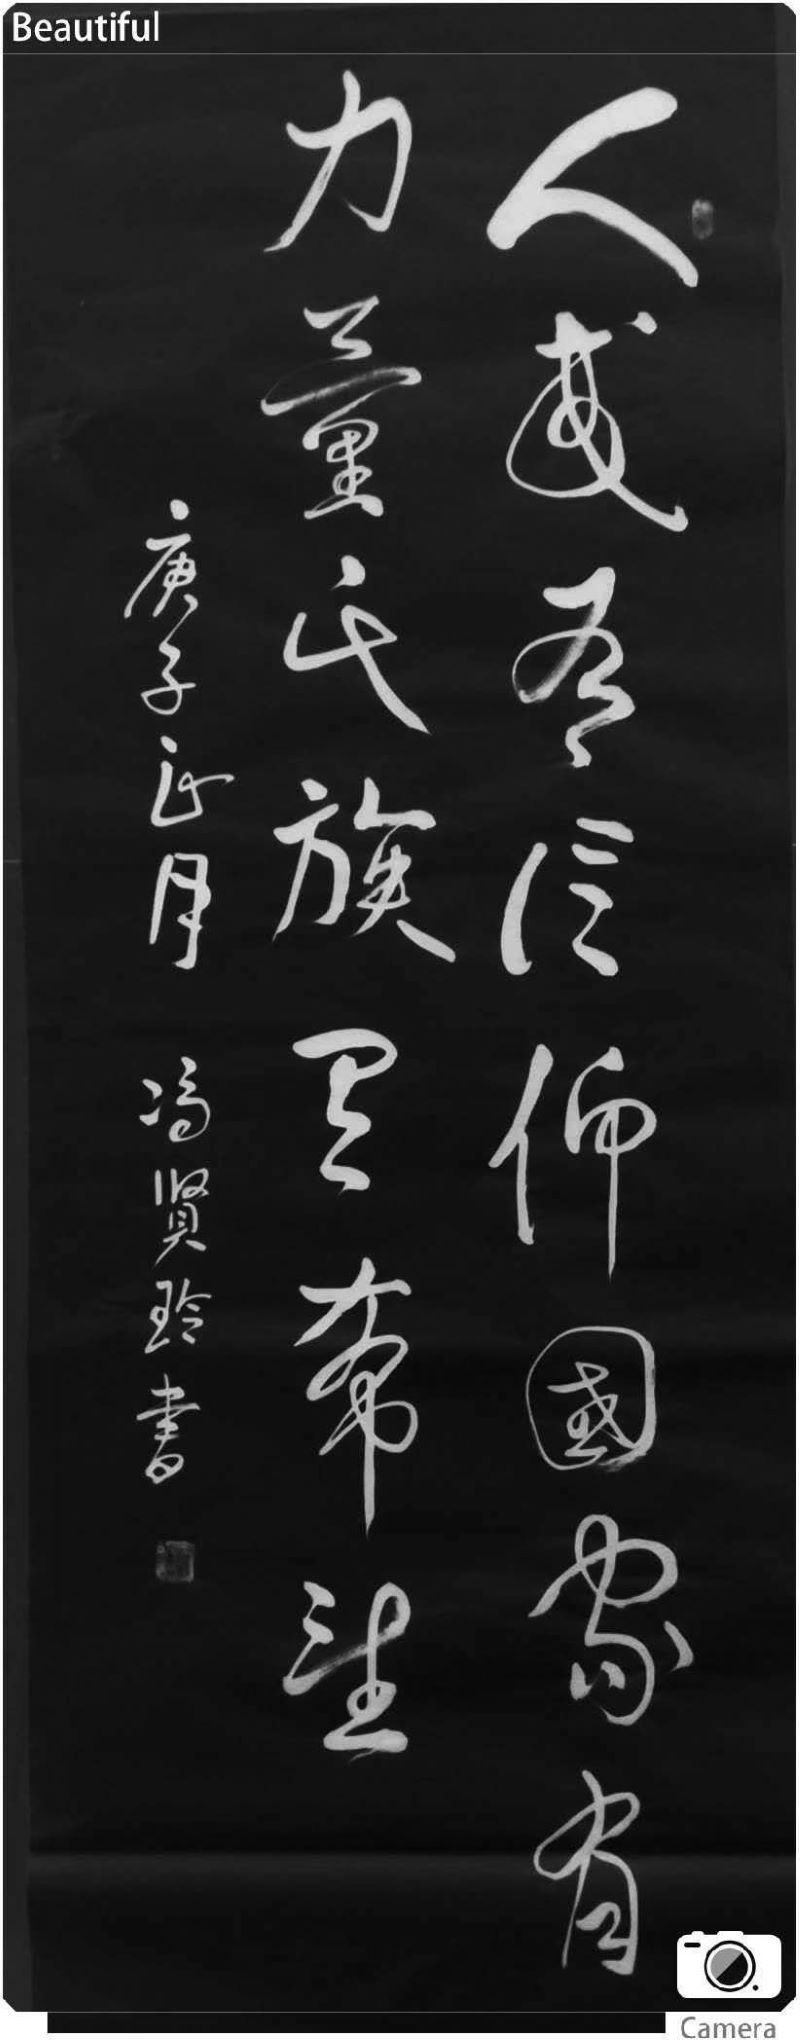 Beautiful
人民有信仰國家有
力量民族有希望
庚子正月 冯贤玲書
Camera